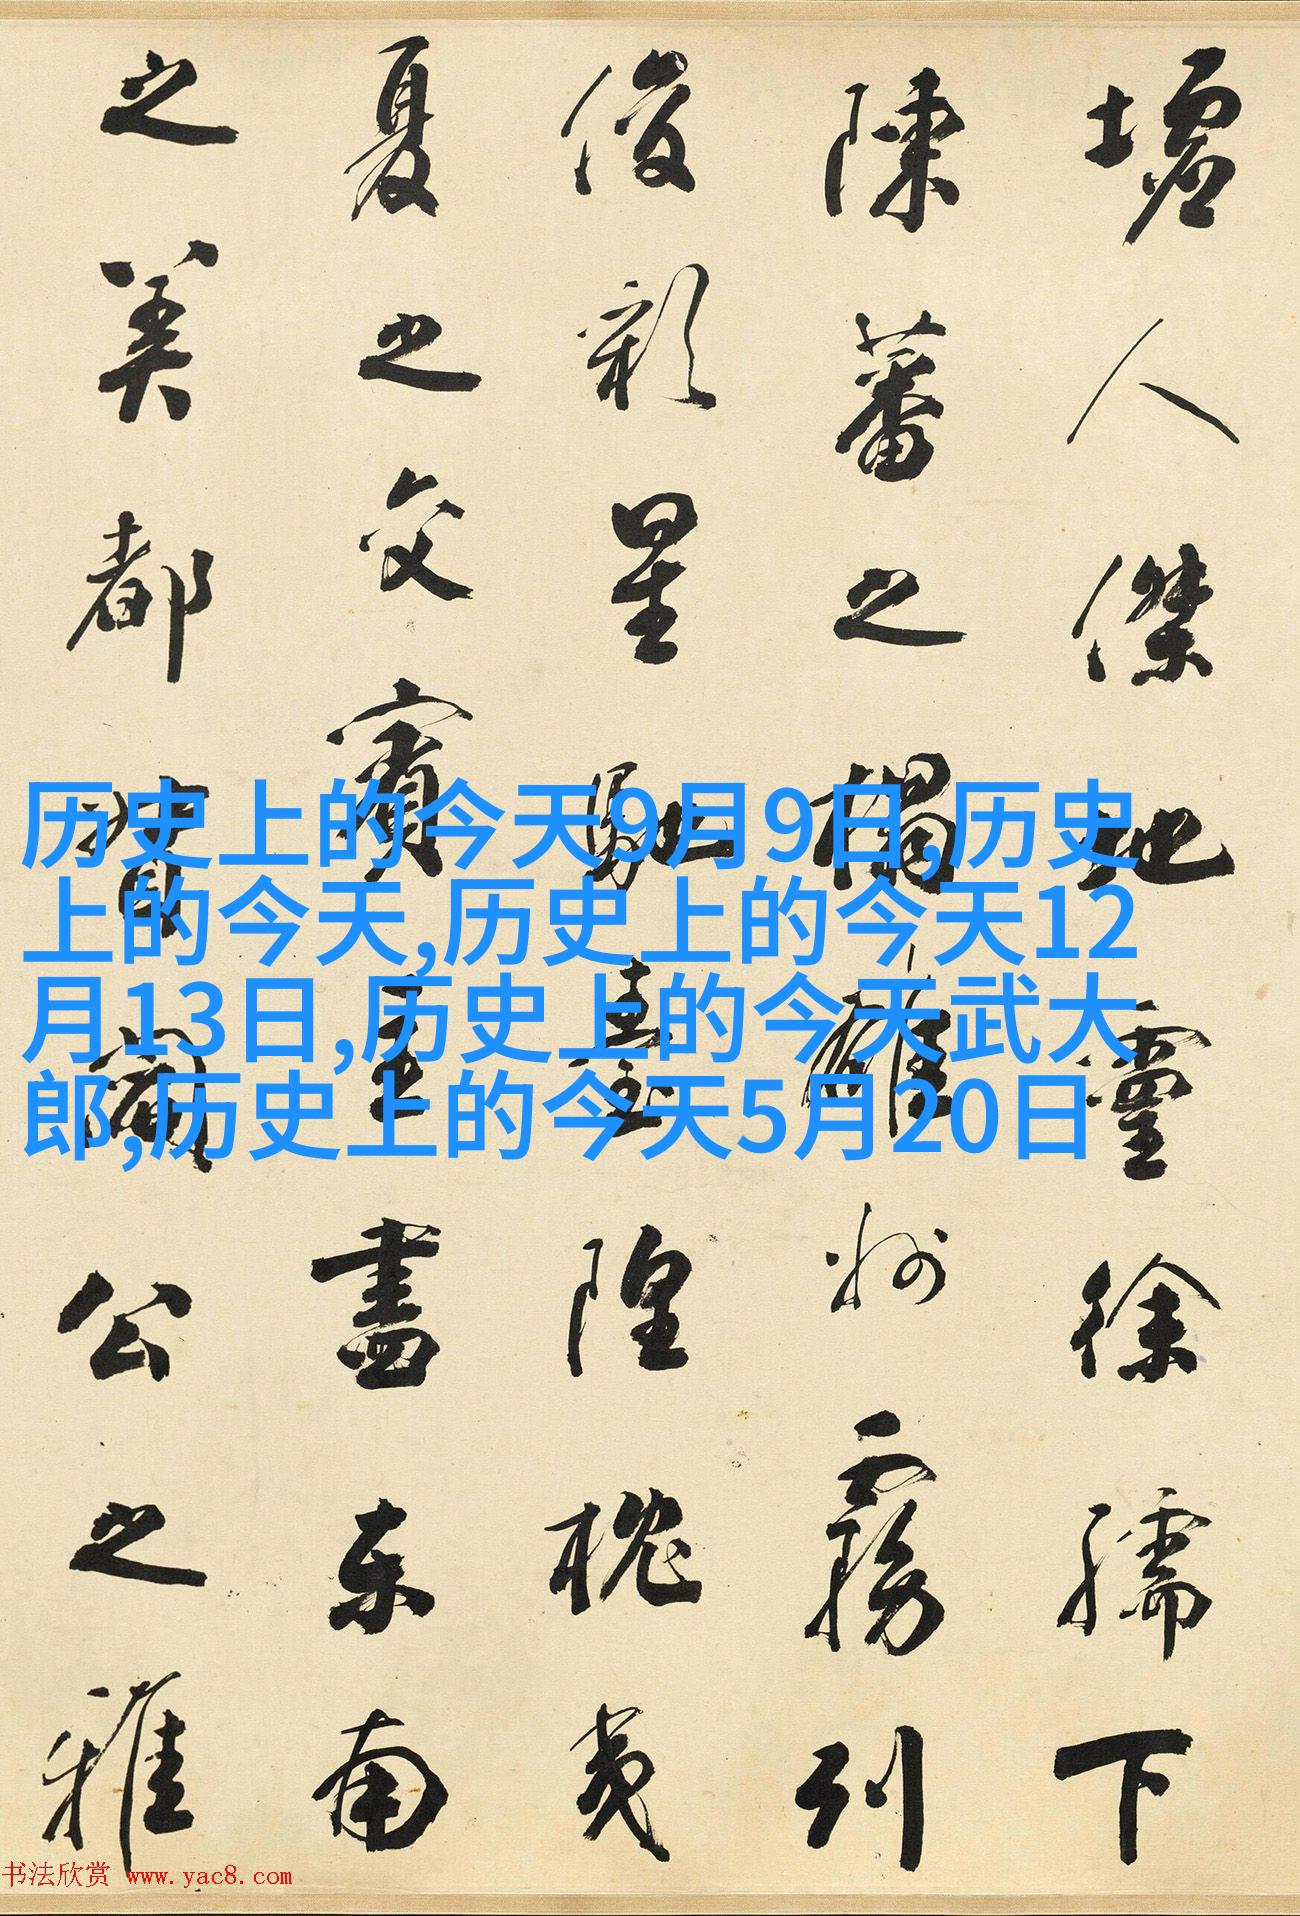 墟人傑地靈徐孺下
陳蕃之榻雄州霧列
俊彩星馳臺隍枕夷
夏之交賓主盡東南
之美都督閻公之雅
历史上的今天9月9日,历史
上的今天,历史上的今天12
月13日,历史上的今天武大
郎,历史上的今天5月20日
书法欣赏 www.yac8.com